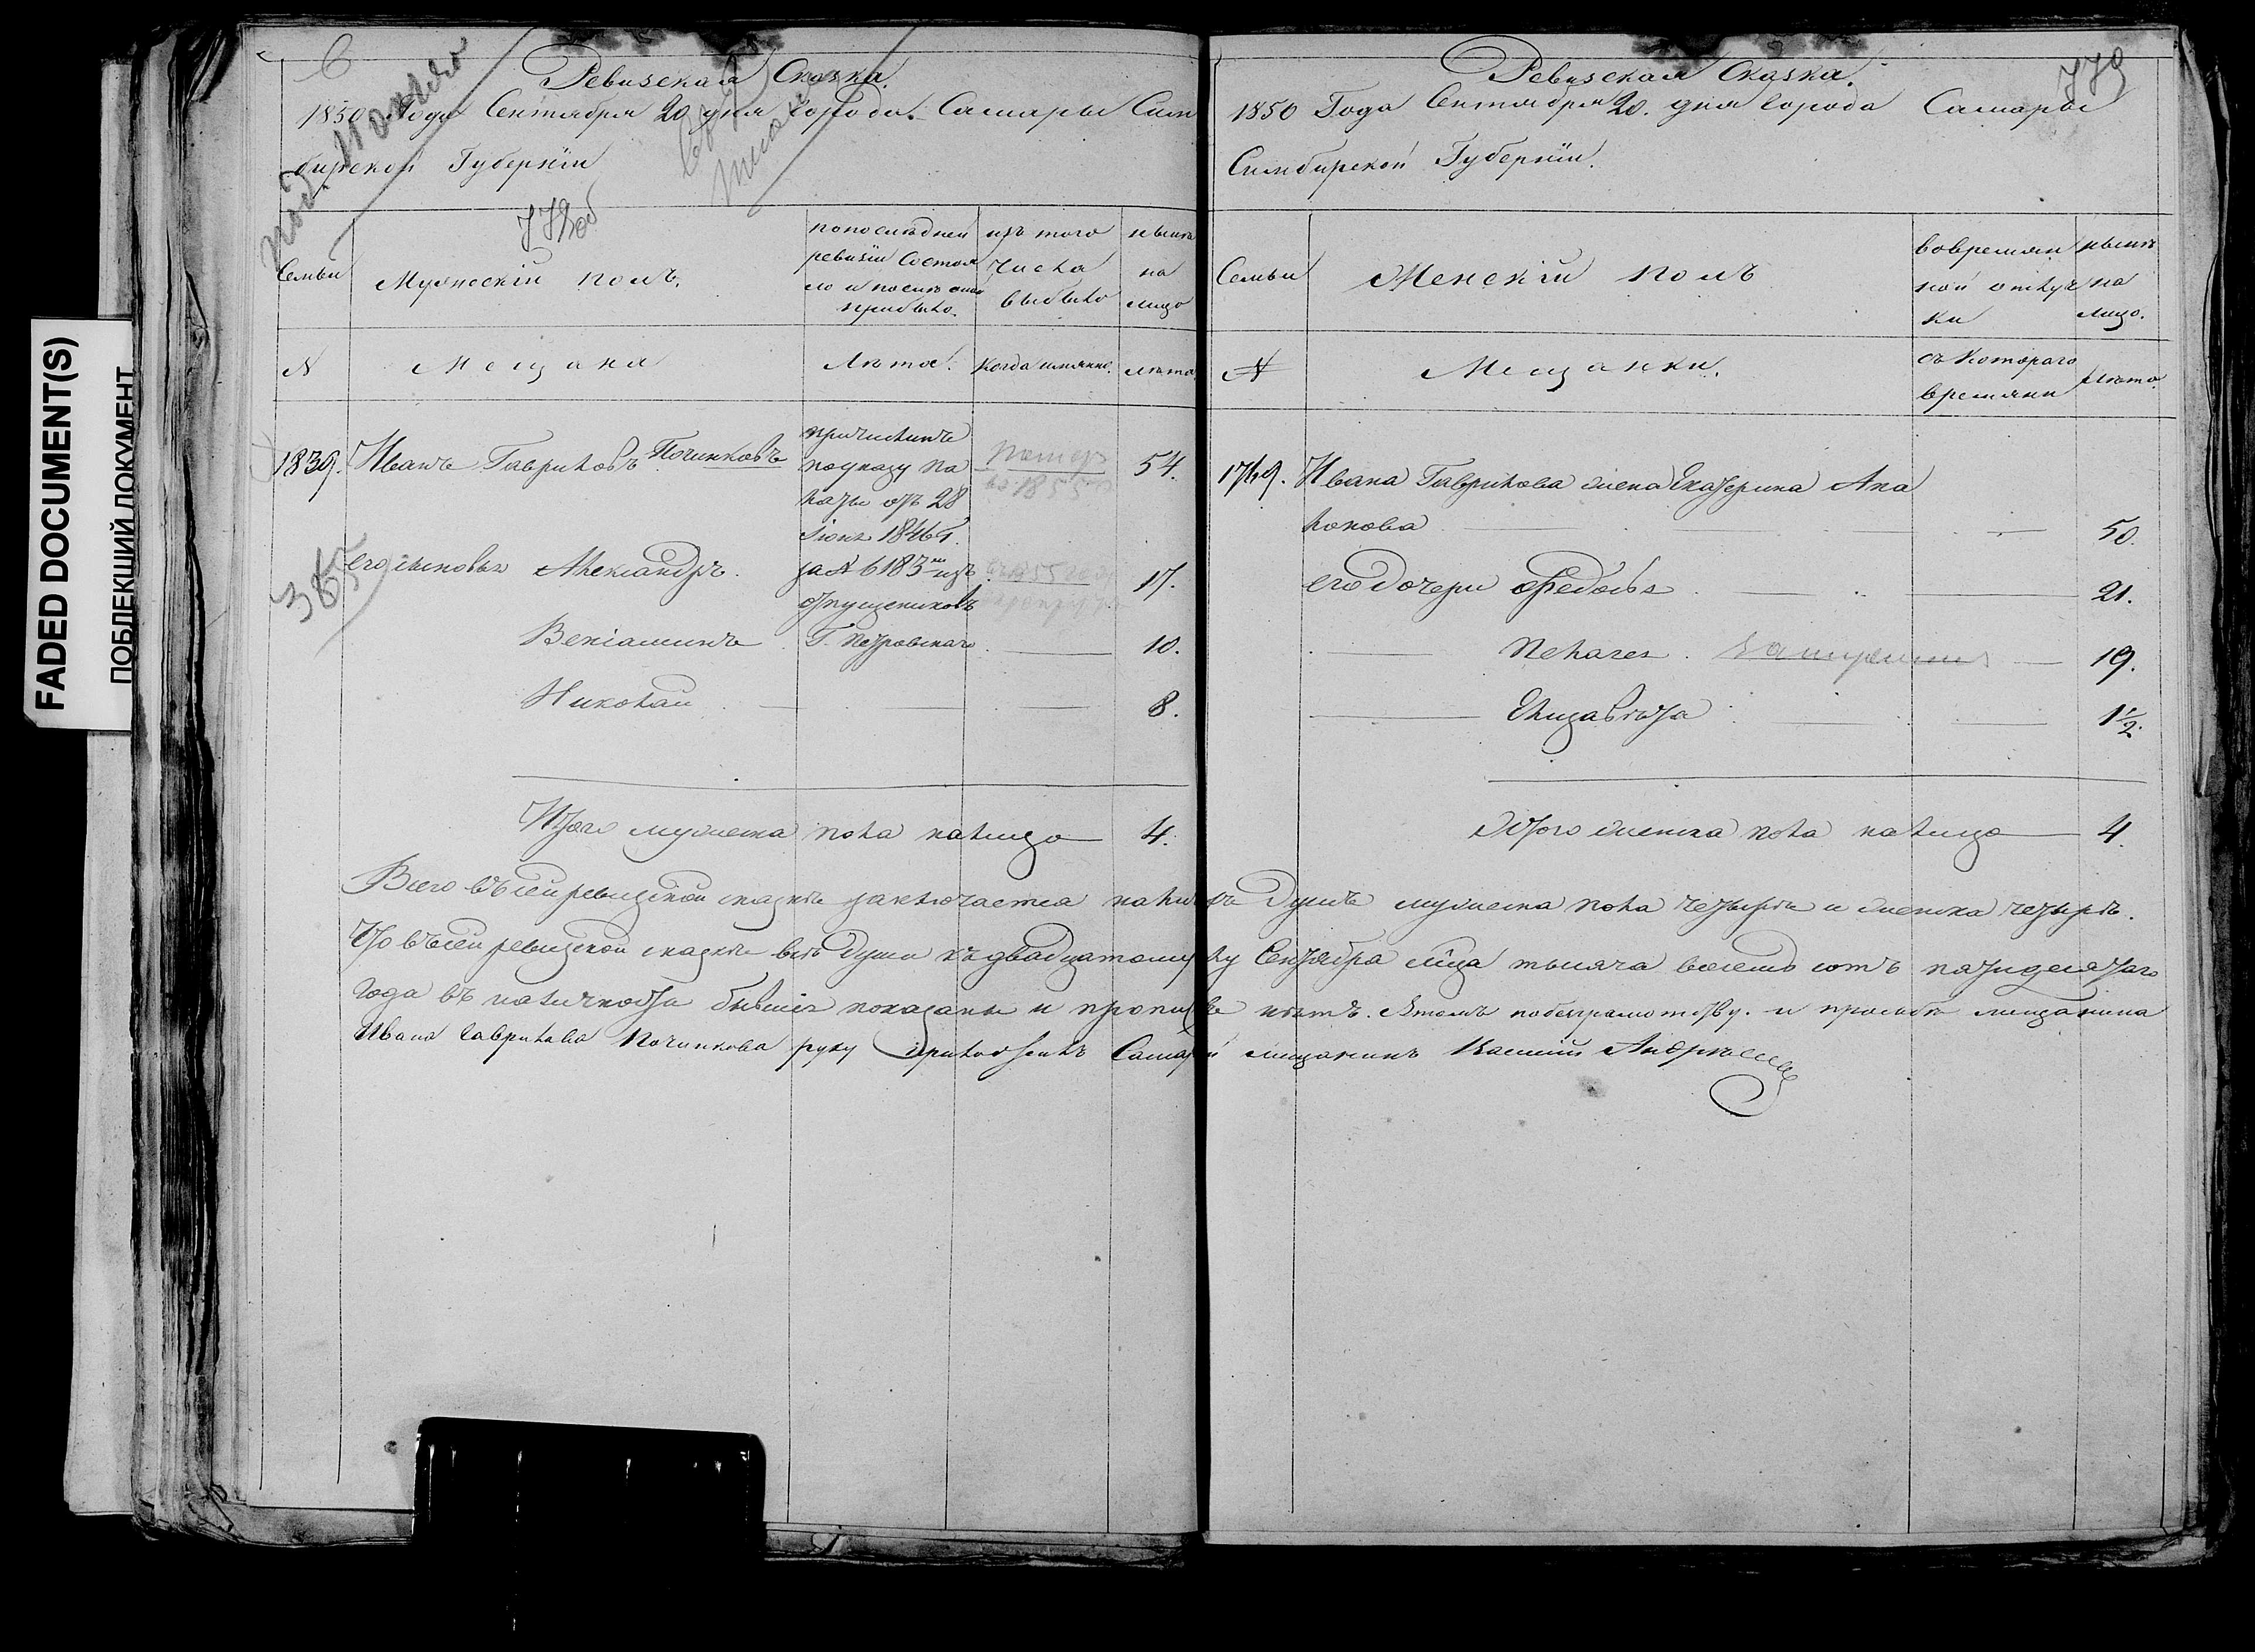 FADED DOCUMENT(S)
ПОБЛЕКШИЙ ДОКУМЕНТ
Ревизская Сказка.
1850 Года Сентября 20 дня города Самары Сим
бирской Губернiи
778об
Семьи
Мужескiй полъ.
попоследней ревизiи состоя
ло и после она
прибыло.
изъ того
числа
выбыло
ныне
на
лицо
№
Мещана
Лета.
Когда имянно.
лета
1839. Иванъ Гавриловъ Починковъ
причисленъ
поуказу Па
латы отъ 28
Iюня 1846 г.
за № 6183 изъ
отпущениковъ
Г. Петровскаго
Помер
в 1855
54.
385
его сыновья Александръ.
17.
Венiаминъ
10.
Николай
8.
Итого мужеска пола налицо 4.
Ревизская Сказка.
779
1850 Года Сентября 20. дня города Самары
Симбирской Губернiи.
Семьи
Женскiй полъ
вовремян
ной отлуч
ки
ныне
на
лицо.
№
Мещанки.
съ котораго
времяни
лета.
1749. Ивана Гаврилова жена Екатерина Ага
50.
его дочери Федосья 21.
Пелагея 19.
Елизавета 1½.
Итого женска пола налицо 4.
Всего въ сей ревизской сказке заключается налицо душъ мужеска пола четыре и женска четыре.
Что въ сей ревизской сказке все души къ двадцатому Сентября мца тысяча восемь сотъ пятидесятаго
года въ наличности бывшiя показаны и прописныхъ нетъ. Въ томъ по безграмотству и прозьбе мещанина
Ивана Гаврилова Починкова руку приложилъ Самарскiй мещанинъ